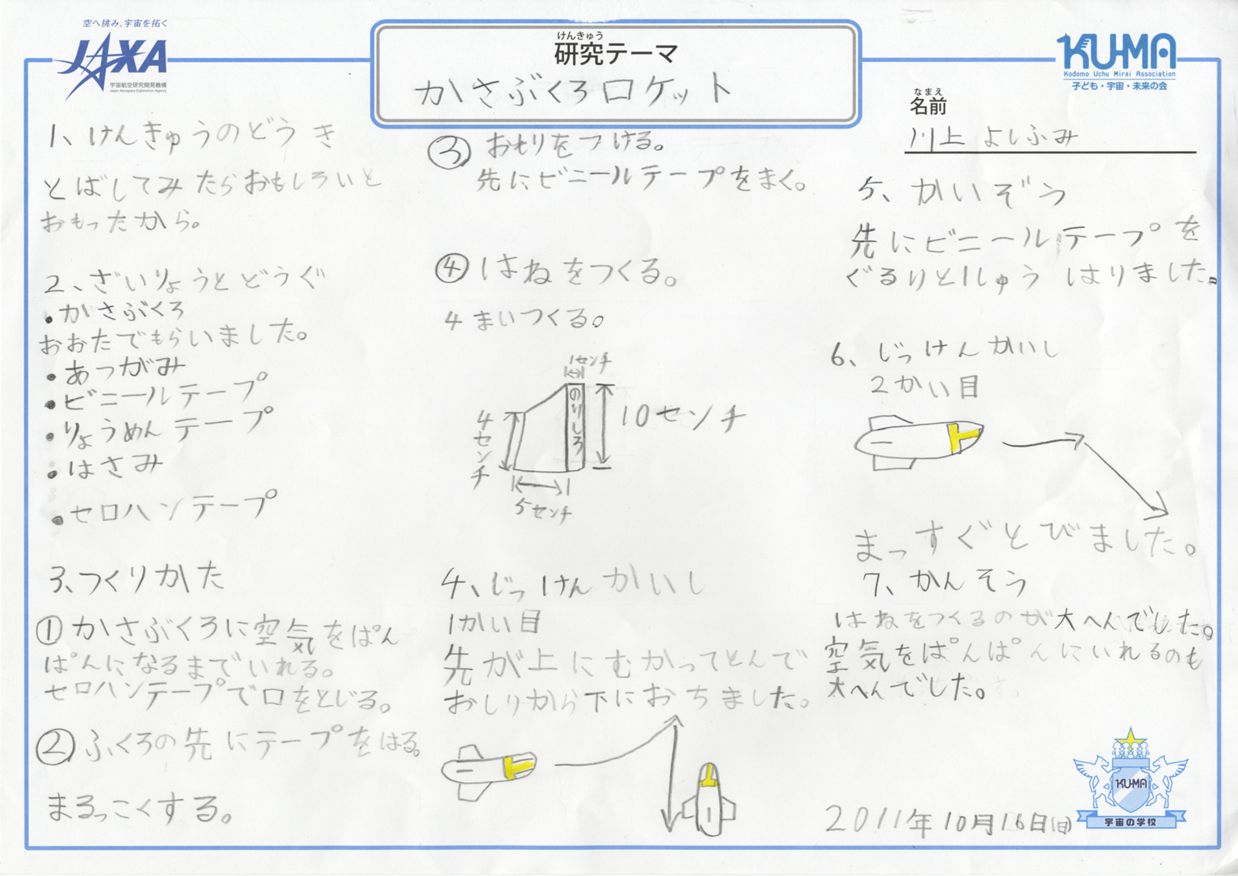 空へ挑み、宇宙を拓く
JAXA
宇宙航空研究開発機構
Japan Aerospace Exploration Agency
けんきゅう
研究テーマ
かさぶくろロケット
KU-MA
Kodomo Uchu Mirai Association
子ども・宇宙・未来の会
なまえ
名前
川上 よしふみ
1、けんきゅうのどうき
とばしてみたらおもしろいと
おもったから。
2、ざいりょうとどうぐ
・かさぶくろ
おおたでもらいました。
・あつがみ
・ビニールテープ
・りょうめんテープ
・はさみ
・セロハンテープ
3、つくりかた
①かさぶくろに空気をぱん
ぱんになるまでいれる。
セロハンテープで口をとじる。
②ふくろの先にテープをはる。
まるっこくする。
③おもりをつける。
先にビニールテープをまく。
④はねをつくる。
4まいつくる。
1センチ
のりしろ
10センチ
4センチ
5センチ
4、じっけんかいし
1かい目
先が上にむかってとんで
おしりから下におちました。
5、かいぞう
先にビニールテープを
ぐるりと1しゅうはりました。
6、じっけんかいし
2かい目
まっすぐとびました。
7、かんそう
はねをつくるのが大へんでした。
空気をぱんぱんにいれるのも
大へんでした。
2011年10月16日(日)
KU-MA
宇宙の学校